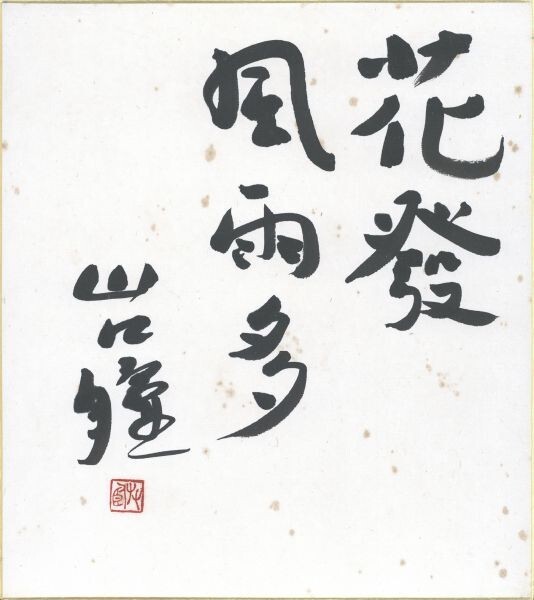 花發
風雨多
山口瞳